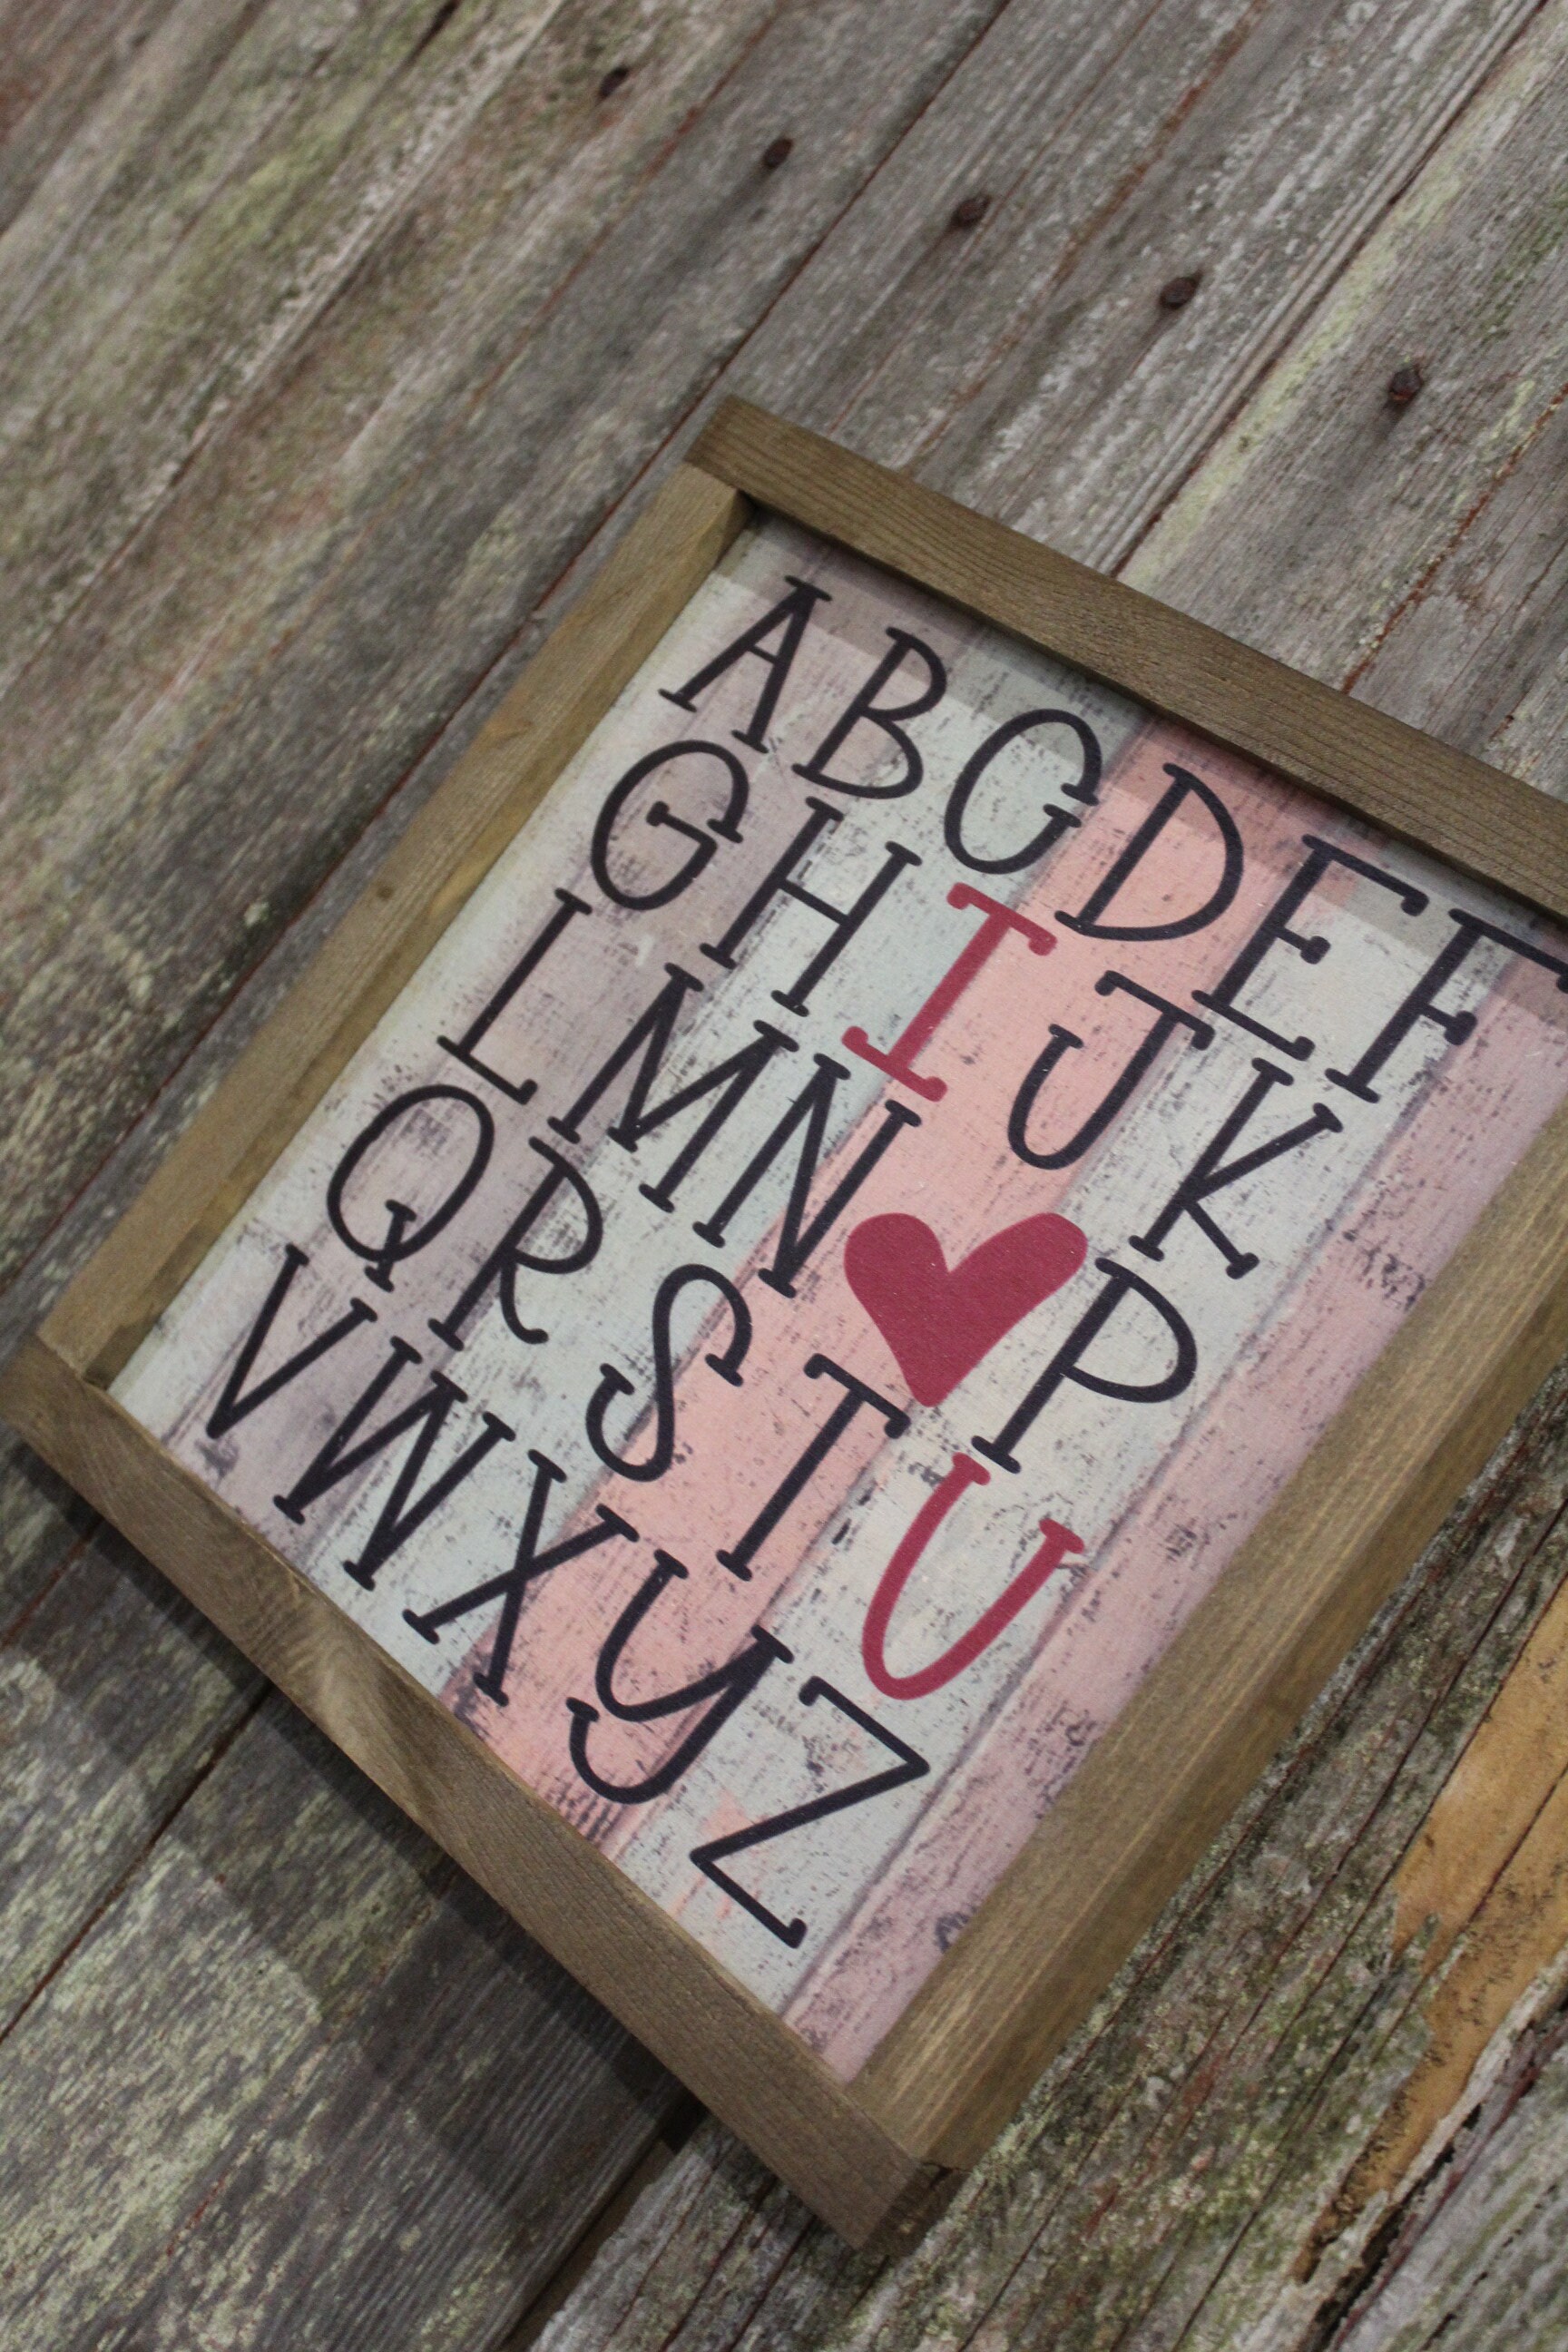 ABCDEF
GHIJK
LMN♥P
QRSTU
VWXYZ